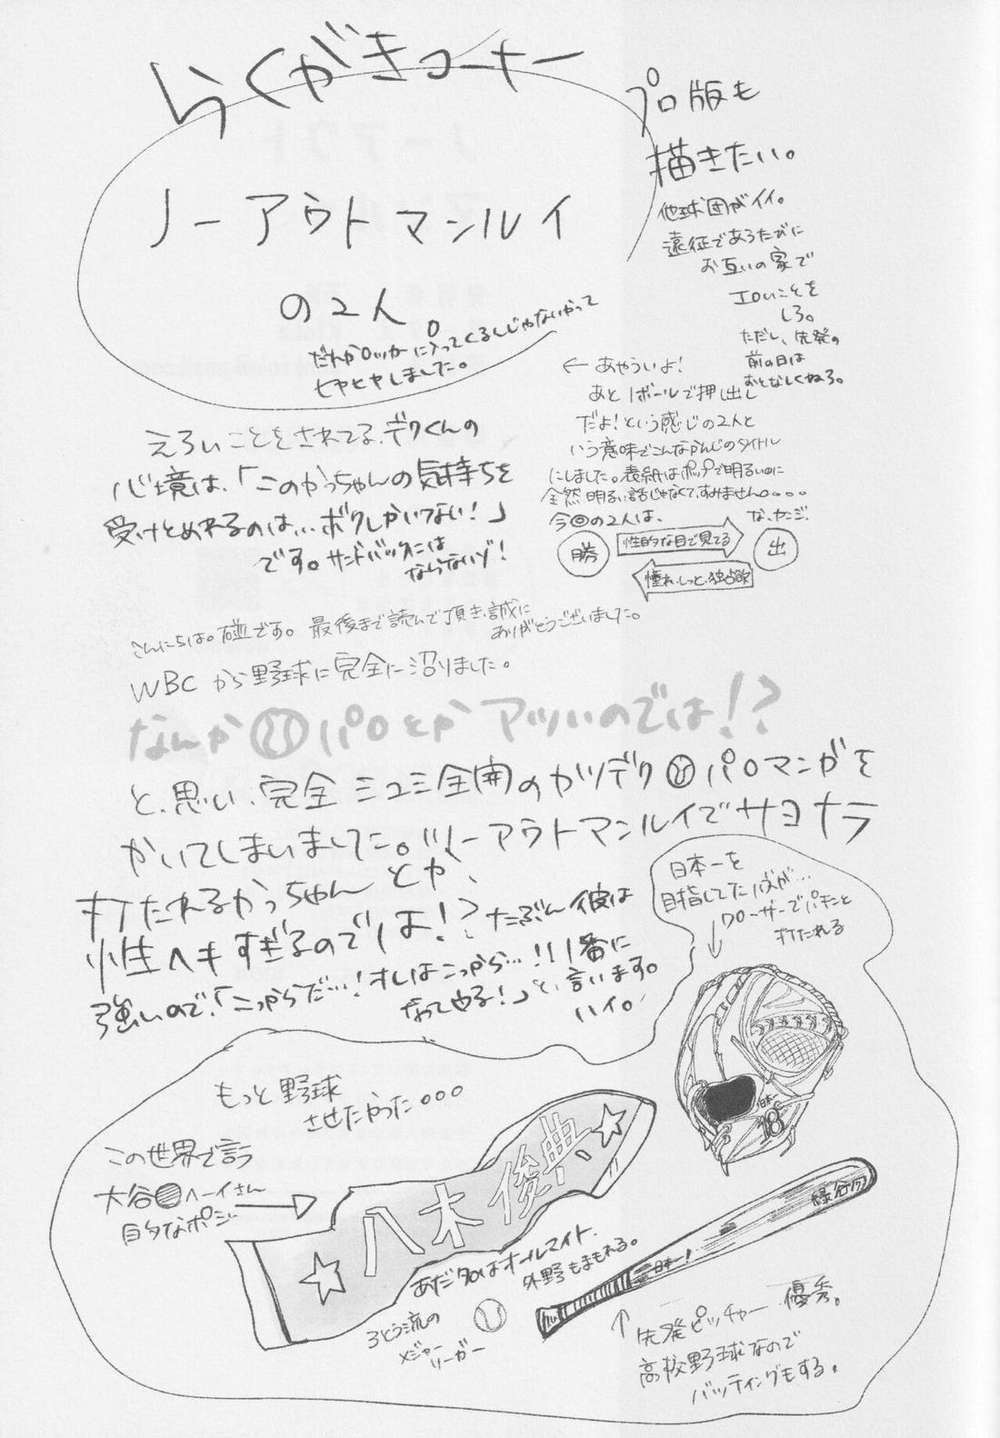 らくがきコーナー
ノーアウトマンルイ
の2人。
だれかロッカーに入ってくるんじゃないかって
ヒヤヒヤしました。
プロ版も
描きたい。
他球団がイイ。
遠征であうたびに
お互いの家で
エロいことを
しろ。
ただし、先発の
前の日は
おとなしくねろ。
← あやういよ!
あと1ボールで押出し
だよ!という感じの2人と
いう意味でこんなかんじのタイトル
にしました。表紙はポップで明るいのに
全然明るい話じゃなくてすみません。。。。
今回の2人は、
な、カンジ。
勝
性的な目で見てる
出
憧れ、しっと、独占欲
えろいことをされてる、デクくんの
心境は、「このかっちゃんの気持ちを
受けとめれるのは…ボクしかいない!」
です。サンドバックには
ならないゾ!
こんにちは。碰です。最後まで読んで頂き、誠に
ありがとうございました。
WBCから野球に完全に沼りました。
なんか パロとか アツいのでは!?
と、思い、完全 ミユミ全開のカツデク パロマンガを
かいてしまいました。ノーアウトマンルイでサヨナラ
打たれるかっちゃん とか、
性ヘキすぎるのでは!? たぶん 彼は
強いので、「こっからだ…!オレはこっから…!!1番に
なってやる!」と、言います。
ハイ。
日本一を
目指してた1伐が…
クローザーでパキンと
打たれる
もっと野球
させたかった。。。
この世界で言う
大谷 ヘーイさん
的なポジ
八木俊典
あだ名はオールマイト。
外野もまもれる。
3とう流の
メジャー
リーガー
日本一
18
緑谷
日本一!
↑先発ピッチャー 優秀。
高校野球なので
バッティングもする。